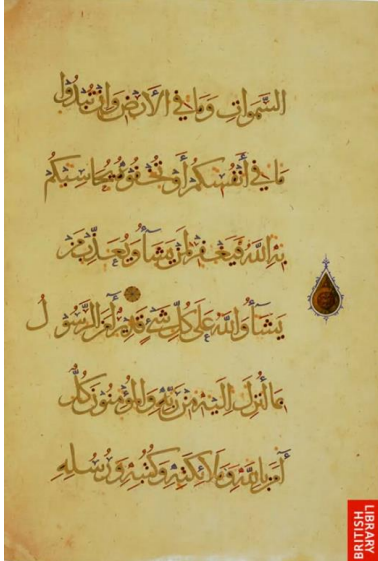 السَّمَوَاتِ وَمَا فِي الْأَرْضِ وَإِن تُبْدُوا
مَا فِي أَنفُسِكُمْ أَوْ تُخْفُوهُ يُحَاسِبْكُم
بِهِ اللَّهُ فَيَغْفِرُ لِمَن يَشَاءُ وَيُعَذِّبُ مَن
يَشَاءُ وَاللَّهُ عَلَى كُلِّ شَيْءٍ قَدِيرٌ آمَنَ الرَّسُولُ
بِمَا أُنزِلَ إِلَيْهِ مِن رَّبِّهِ وَالْمُؤْمِنُونَ كُلٌّ
آمَنَ بِاللَّهِ وَمَلَائِكَتِهِ وَكُتُبِهِ وَرُسُلِهِ
BRITISH
LIBRARY